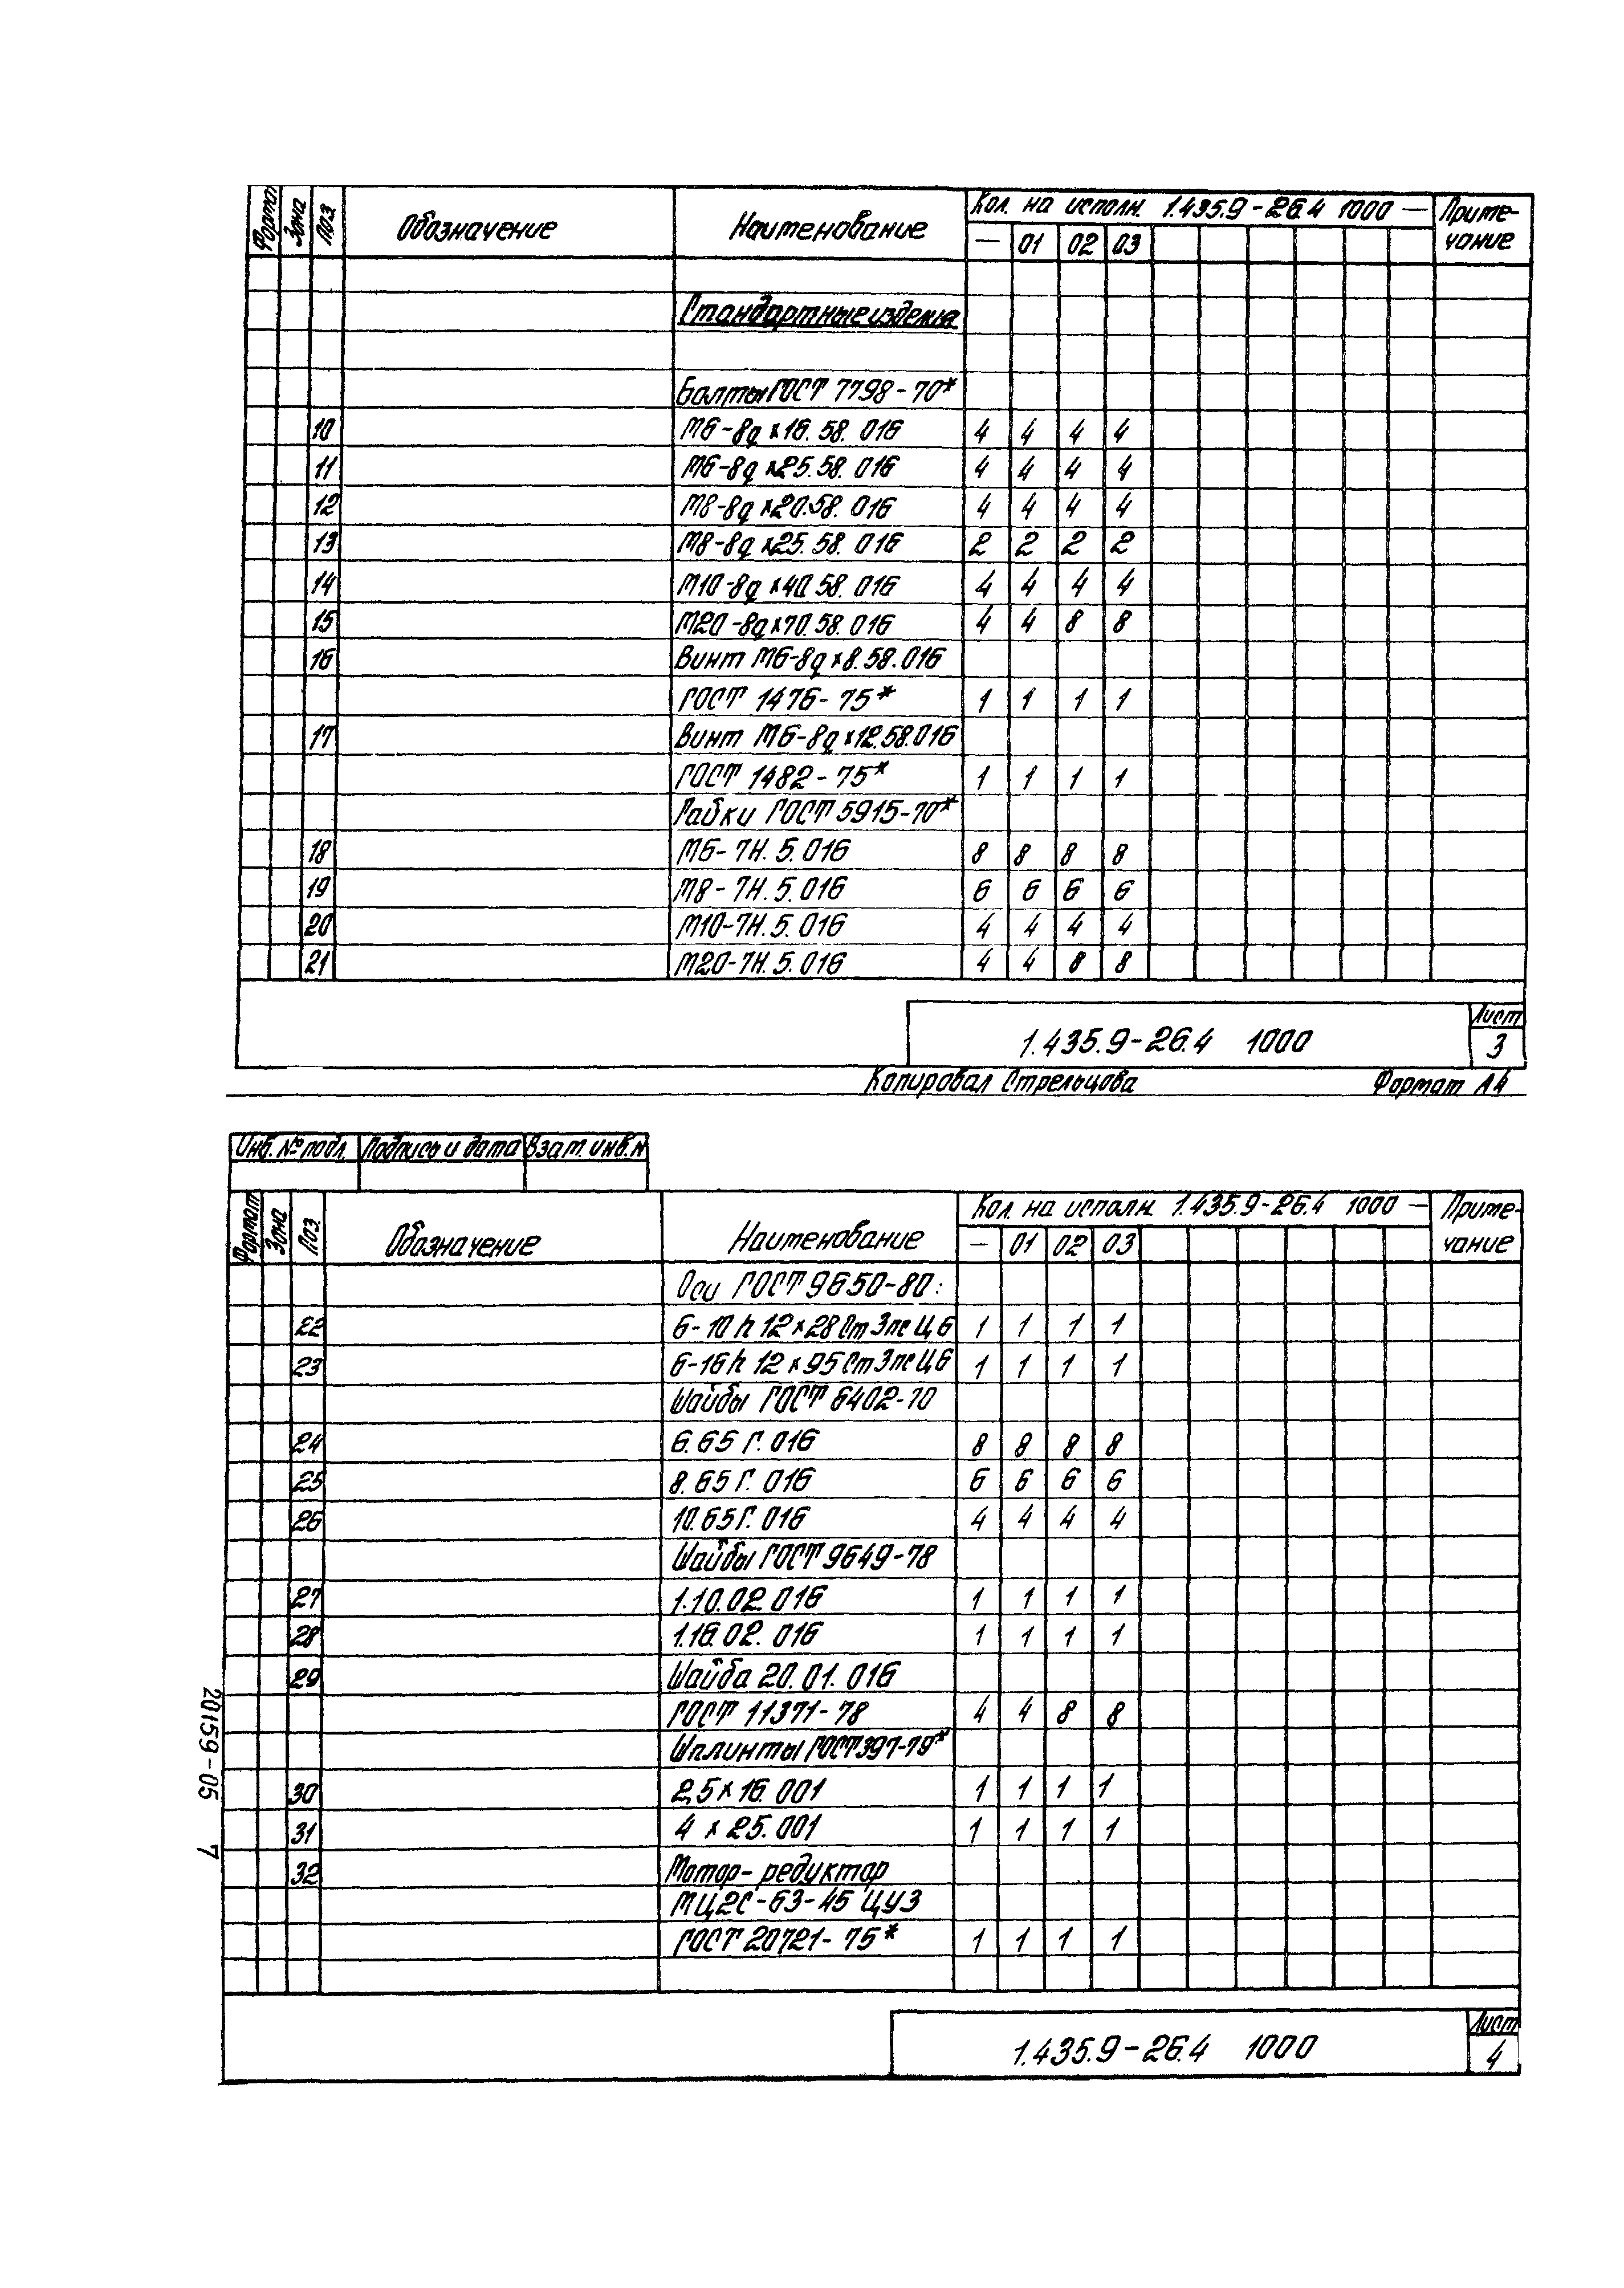 Формат Зона Поз. Обозначение Наименование Кол. на исполн. 1.435.9-26.4 1000 — Приме-
— 01 02 03 чание
Стандартные изделия
Болты ГОСТ 7798-70*
10 М6-8g×16.58.016 4 4 4 4
11 М6-8g×25.58.016 4 4 4 4
12 М8-8g×20.58.016 4 4 4 4
13 М8-8g×25.58.016 2 2 2 2
14 М10-8g×40.58.016 4 4 4 4
15 М20-8g×70.58.016 4 4 8 8
16 Винт М6-8g×8.58.016
ГОСТ 1476-75* 1 1 1 1
17 Винт М6-8g×12.58.016
ГОСТ 1482-75* 1 1 1 1
Гайки ГОСТ 5915-70*
18 М6-7Н.5.016 8 8 8 8
19 М8-7Н.5.016 6 6 6 6
20 М10-7Н.5.016 4 4 4 4
21 М20-7Н.5.016 4 4 8 8
1.435.9-26.4 1000 Лист
3
Копировал Стрельцова Формат А4
Инв. № подл. Подпись и дата Взам. инв. №
Формат Зона Поз. Обозначение Наименование Кол. на исполн. 1.435.9-26.4 1000 — Приме-
— 01 02 03 чание
Оси ГОСТ 9650-80:
22 6-10h12×28 Ст3пс Ц6 1 1 1 1
23 6-16h12×95 Ст3пс Ц6 1 1 1 1
Шайбы ГОСТ 6402-70
24 6.65Г.016 8 8 8 8
25 8.65Г.016 6 6 6 6
26 10.65Г.016 4 4 4 4
Шайбы ГОСТ 9649-78
27 1.10.02.016 1 1 1 1
28 1.16.02.016 1 1 1 1
29 Шайба 20.01.016
ГОСТ 11371-78 4 4 8 8
Шплинты ГОСТ 397-79*
30 2,5×16.001 1 1 1 1
31 4×25.001 1 1 1 1
32 Мотор-редуктор
МЦ2С-63-45 ЦУ3
ГОСТ 20721-75* 1 1 1 1
1.435.9-26.4 1000 Лист
4
20159-05 7